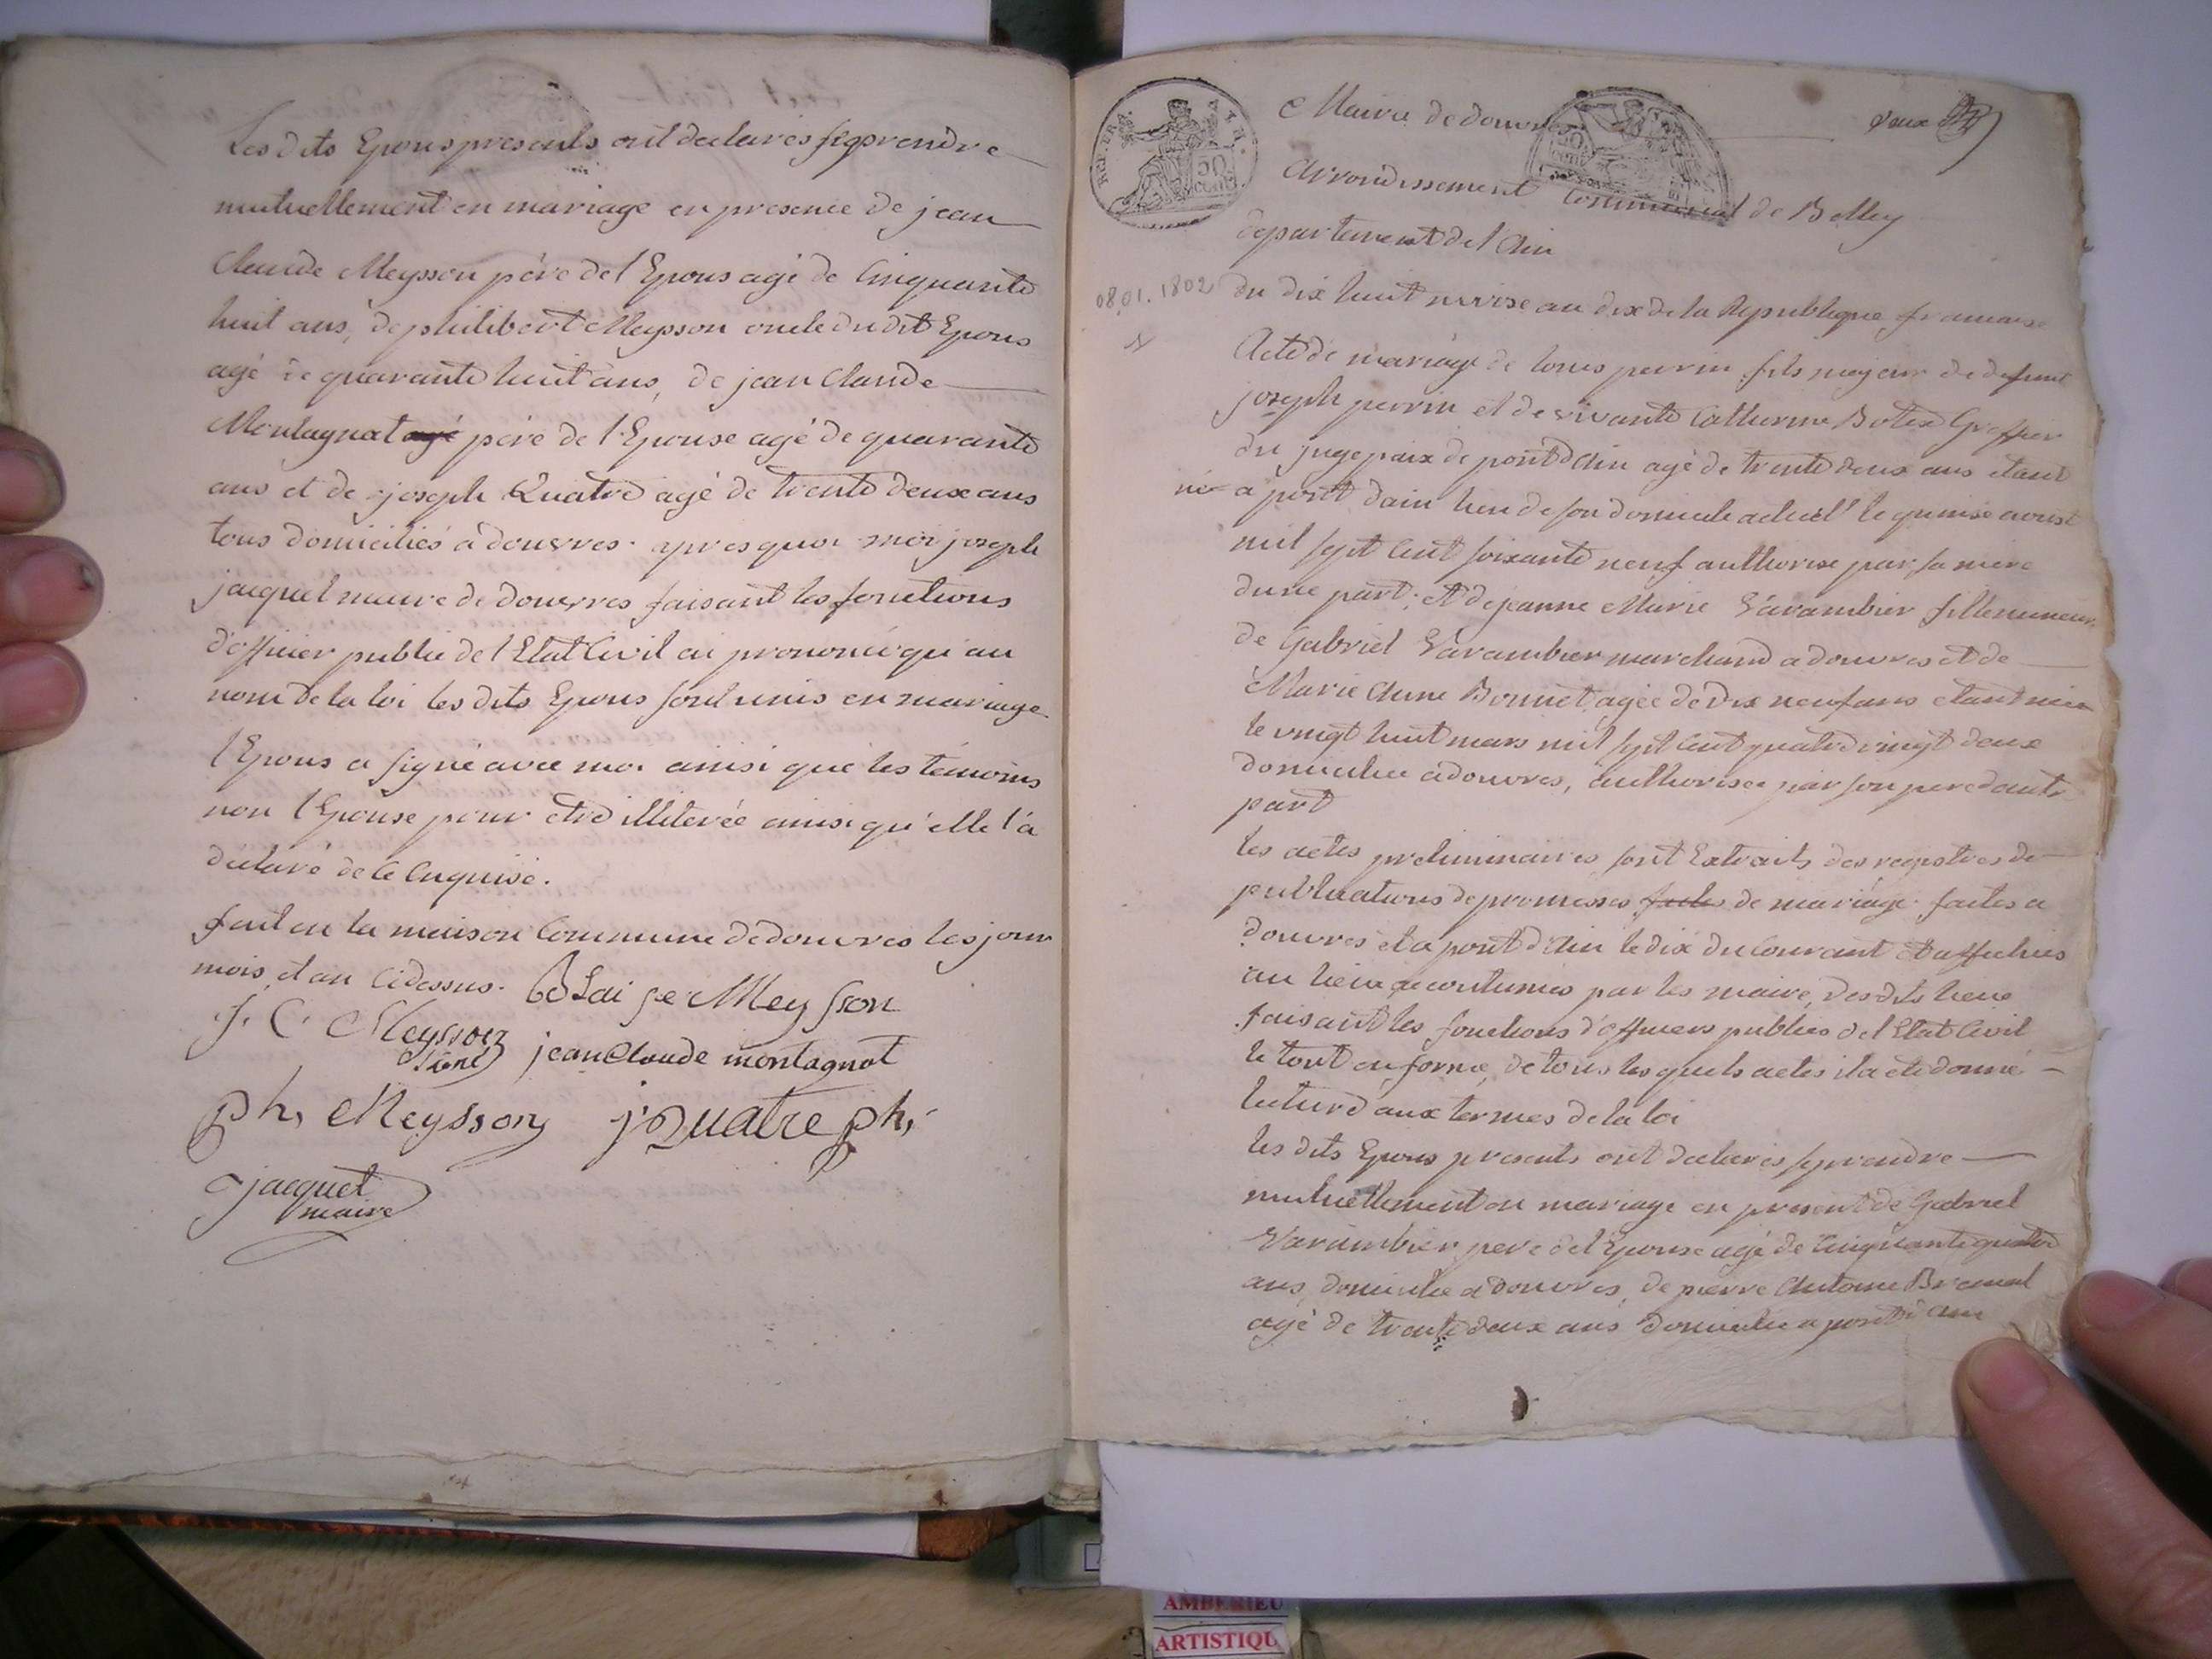 Les dits Epous presents ont declarés se prendre
mutuellement en mariage en presence de jean
Claude Meysson pére de l'Epous agé de Cinquante
huit ans, de philibert Meysson oncle du dit Epous
agé de quarante huit ans, de jean Claude
Montagnat agé pére de l'Epouse agé de quarante
ans et de joseph Quatre agé de trente deux ans
tous domiciliés a douvres. apres quoi moi joseph
jacquet maire de douvres faisant les fonctions
d'officier public de l'Etat Civil ai prononcé qu'au
nom de la loi les dits Epous sont unis en mariage
l'Epous a signé avec moi ainsi que les témoins
non l'Epouse pour etre illiterée ainsi qu'elle l'a
déclaré de ce Enquise.
fait en la maison Commune de douvres les jour
mois et an Cidessus. Blaise Meysson
J. C. Meysson
jean Claude montagnat
ph. Meysson j. Quatre ph.
jacquet
maire
REP. FRA.
50
cent
Mairie de douvres
deux
Arrondissement Communal de Belley
departement de l'Ain
08.01.1802 du dix huit nivise an dix de la Republique francaise
Acte de mariage de louis perrin fils majeur de defunt
joseph perrin et de vivante Catherine Botex Greffier
du juge paix de pont d'Ain agé de trente deux ans etant
né a pont dain lieu de son domicile actuel le quinse aoust
mil sept Cent soixante neuf authorise par sa mére
dune part; et de jeanne Marie Varambier fille mineure
de Gabriel Varambier marchand a douvres et de
Marie Anne Bonnet, agée de dix neuf ans etant née
le vingt huit mars mil sept Cent quatre vingt deux
domiciliee a douvres, authorisée par son pere d'autre
part
les actes preliminaires sont Extraits des registres de
publications de promesses faites de mariage faites a
douvres et a pont d'Ain le dix du Courant et affichés
au lieux accoutumés par les maire, des dits lieux
faisant les fonctions d'officiers publics de l'Etat Civil
le tout en forme, de tous les quels actes il a eté donné
lecture aux termes de la loi
les dits Epous presents ont declarés se prendre
mutuellement en mariage en present de Gabriel
Varambier pere de l'Epouse agé de Cinquante quatre
ans, domicilié a douvres, de pierre Antoine
agé de trente deux ans domicilié a pont d'Ain
AMBERIEU
ARTISTIQU